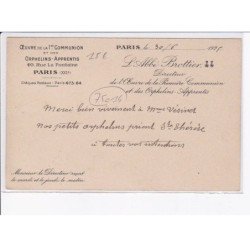 ŒUVRE DE LA 1re COMMUNION
ET DES
ORPHELINS-APPRENTIS
40, Rue La Fontaine
PARIS (XVIe)
Chèques Postaux : Paris 673-64
PARIS, le 30/5 19
L'Abbé Brottier
Directeur
de l'Œuvre de la Première Communion
et des Orphelins Apprentis
Merci bien vivement à Mme
nos petits orphelins prient Ste Thérèse
à toutes vos intentions
Monsieur le Directeur reçoit
le mardi et le jeudi le matin